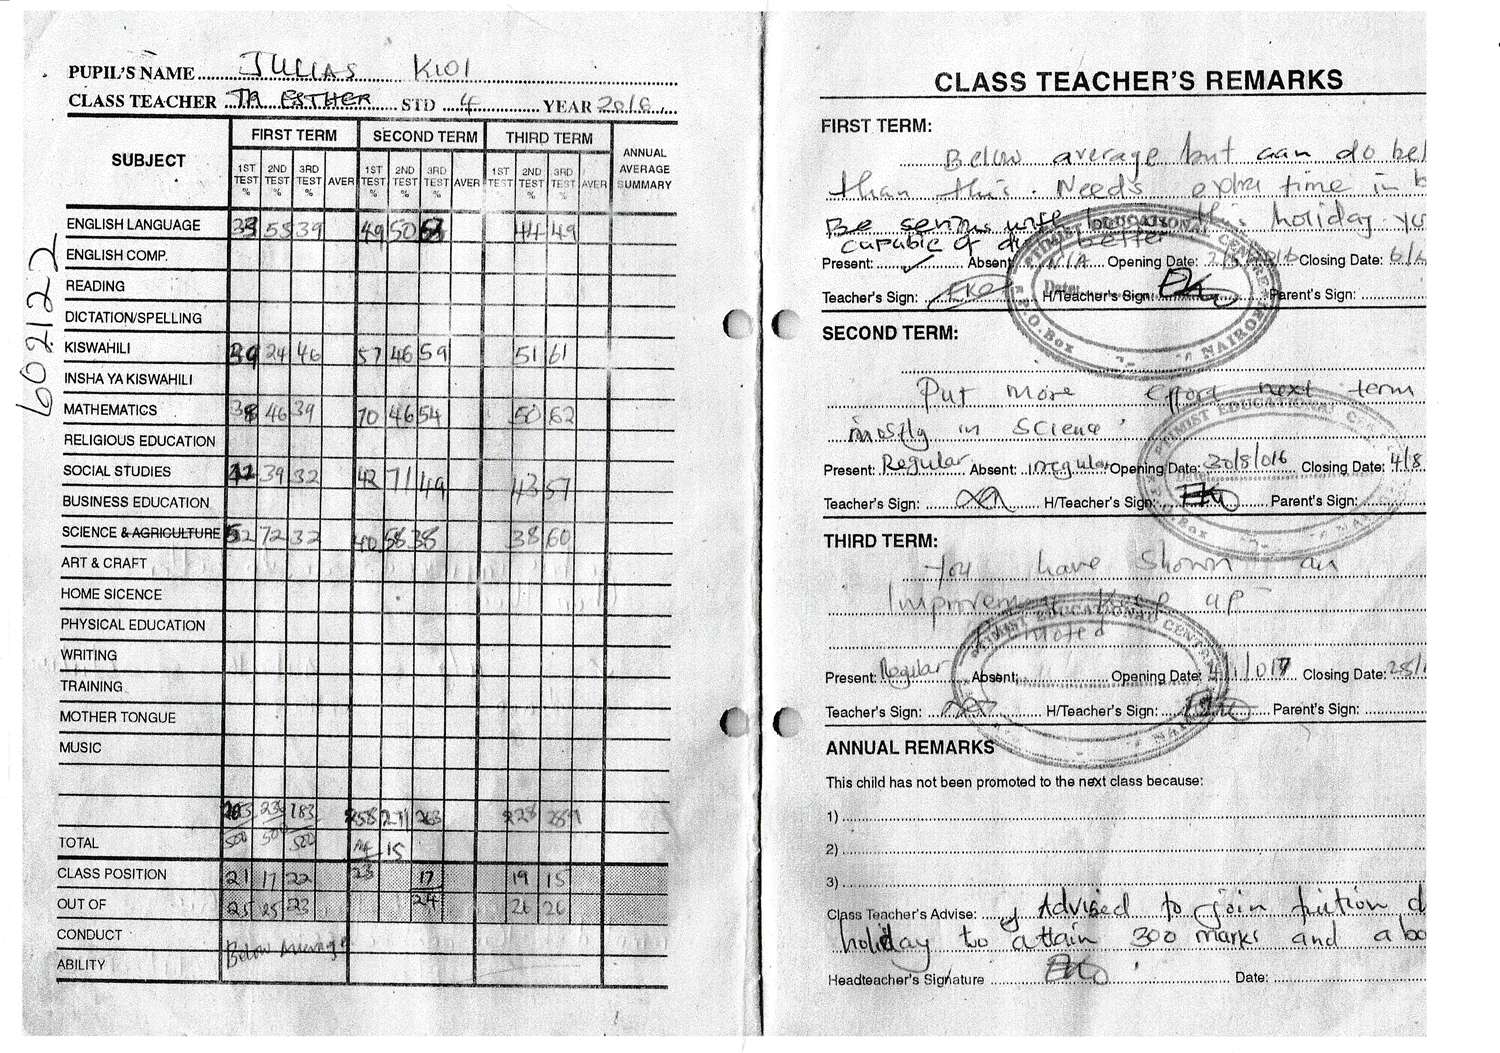 PUPIL'S NAME JULIAS KIOI
CLASS TEACHER TR ESTHER STD 4 YEAR 2016
SUBJECT FIRST TERM SECOND TERM THIRD TERM ANNUAL AVERAGE SUMMARY
1ST TEST % 2ND TEST % 3RD TEST % AVER 1ST TEST % 2ND TEST % 3RD TEST % AVER 1ST TEST % 2ND TEST % 3RD TEST % AVER
ENGLISH LANGUAGE 55 39 49 50 44 49
ENGLISH COMP.
READING
DICTATION/SPELLING
KISWAHILI 24 46 57 46 59 51 61
INSHA YA KISWAHILI
MATHEMATICS 46 39 70 46 54 50 62
RELIGIOUS EDUCATION
SOCIAL STUDIES 39 32 42 71 49 43 57
BUSINESS EDUCATION
SCIENCE & AGRICULTURE 52 72 32 40 58 38 38 60
ART & CRAFT
HOME SICENCE
PHYSICAL EDUCATION
WRITING
TRAINING
MOTHER TONGUE
MUSIC
236 183 258 271 263 228 289
TOTAL 500 500 500 15
CLASS POSITION 21 17 22 23 17 19 15
OUT OF 25 25 23 24 26 26
CONDUCT
ABILITY Below Average
602122
CLASS TEACHER'S REMARKS
FIRST TERM:
Below average but can do bet
than this. Needs extra time in
Be serious this holiday
capable of better
Present: Absent: N/A Opening Date: Closing Date:
Teacher's Sign: H/Teacher's Sign: Parent's Sign:
SECOND TERM:
Put more Effort next term
mostly in Science
Present: Regular Absent: irregular Opening Date: 30/8/016 Closing Date: 4/8
Teacher's Sign: H/Teacher's Sign: Parent's Sign:
THIRD TERM:
You have Shown an
Improvement Keep up
Promoted
Present: Regular Absent: Opening Date: 4/1/017 Closing Date: 28/
Teacher's Sign: H/Teacher's Sign: Parent's Sign:
ANNUAL REMARKS
This child has not been promoted to the next class because:
1)
2)
3)
Class Teacher's Advise: Advised to join tuition d
holiday to attain 300 marks and abo
Headteacher's Signature Date:
EDUCATIONAL CENTRE
P.O. Box NAIROBI